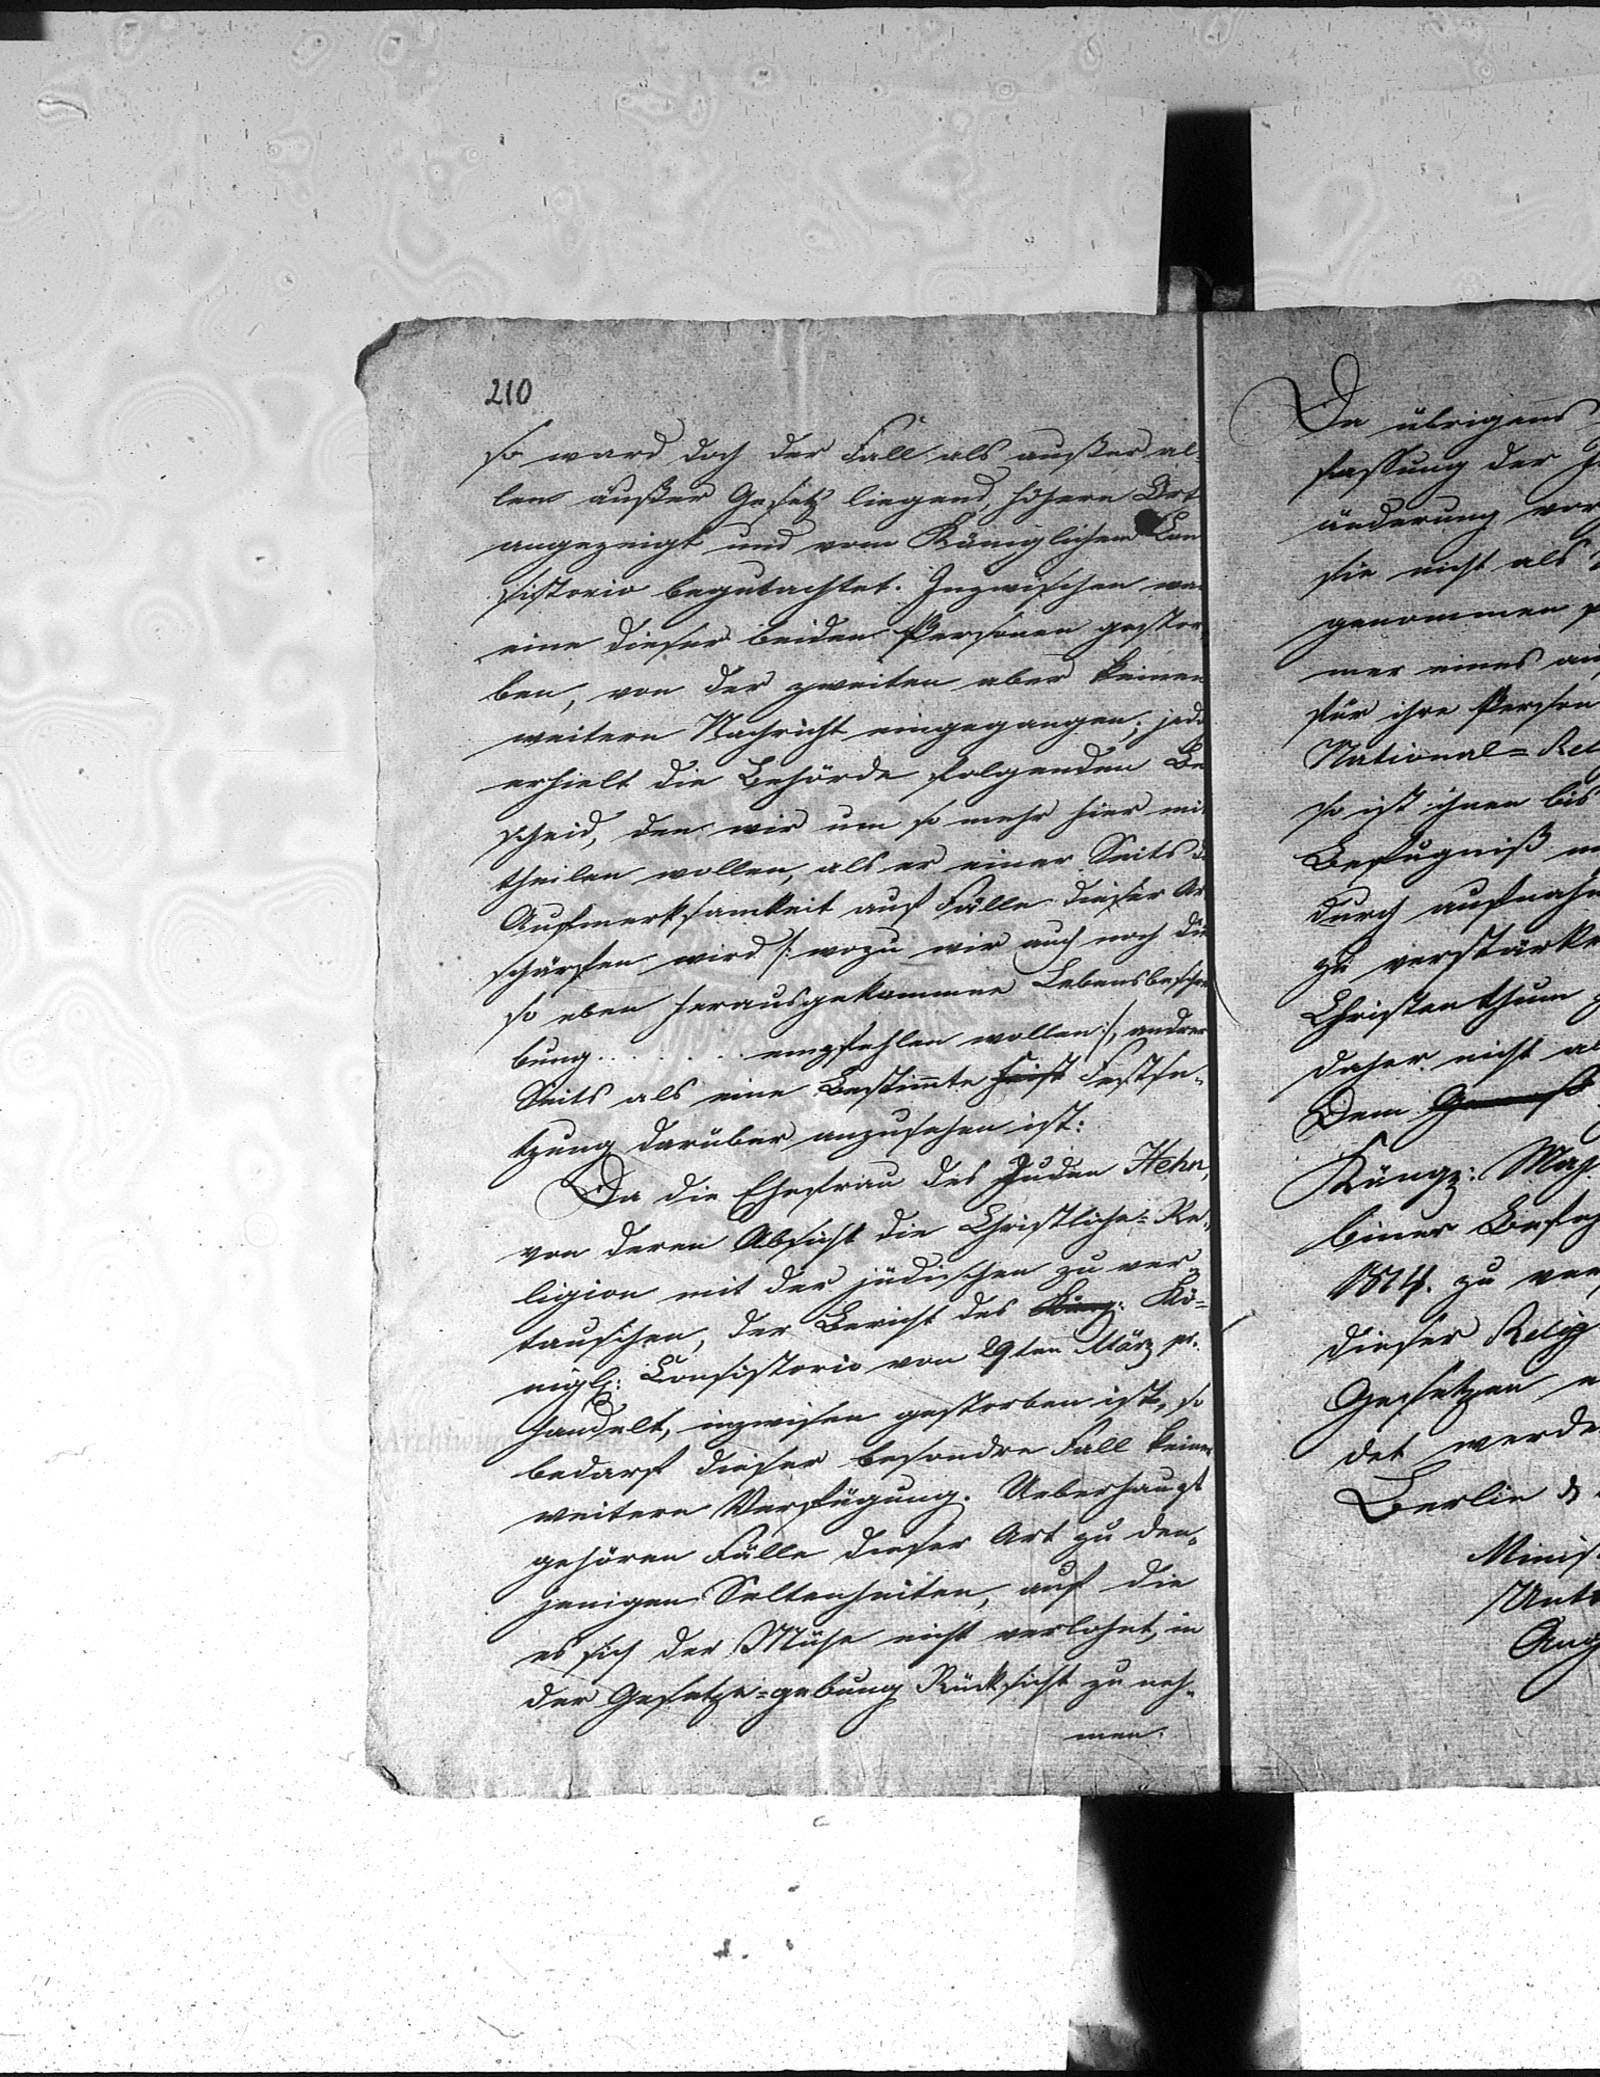 210
so ward doch der Fall als außer al-
lem äußer Gesetz liegend, höhern Ort
angezeigt und vom Königlichen Con
sistorio begutachtet. Inzwischen war
eine dieser beiden Personen gestor,
ben, von der zweiten aber keinen
weitern Nachricht eingegangen; jedo
erhielt die Behörde folgenden Be
scheid, den wir um so mehr hier mit
theilen wollen, als er einer Seits d
Aufmerksamkeit auf Fälle dieser Ar
schärfen wird /: wozu wir auch noch die
so eben herausgekommene Lebensbeschrei
bung . . . . . . . empfehlen wollen :/, andrer
Seits als eine Bestimte Festse-
tzung darüber anzusehen ist:
Da die Ehefrau des Juden Hehn,
von deren Absicht die Christliche-Re-
ligion mit der jüdischen zu ver-
tauschen, der Bericht des König: Kö-
nigl: Consistorio von 29ten März pr.
handelt, inzwisen gestorben ist, so
bedarf dieser besondre Fall keiner
weitern Verfügung. Ueberhaupt
gehören Fälle dieser Art zu den-
jenigen Seltenheiten, auf die
es sich der Mühe nicht verlohnt, in
der Gesetze=gebung Rücksicht zu neh-
men.
Da übrigens
fassung der J
änderung vor
sie nicht als
genommen
mer eines
für ihre Person
National=Rel
so ist ihnen bis
Befugniß
durch aufnahm
zu verstärke
Christenthum
daher nicht al
Dem
Köngz: Maj.
biner Befeh
1814. zu ver
dieser Relig
Gesetzen
det werde
Berlin d
Minist
Unte
Aug